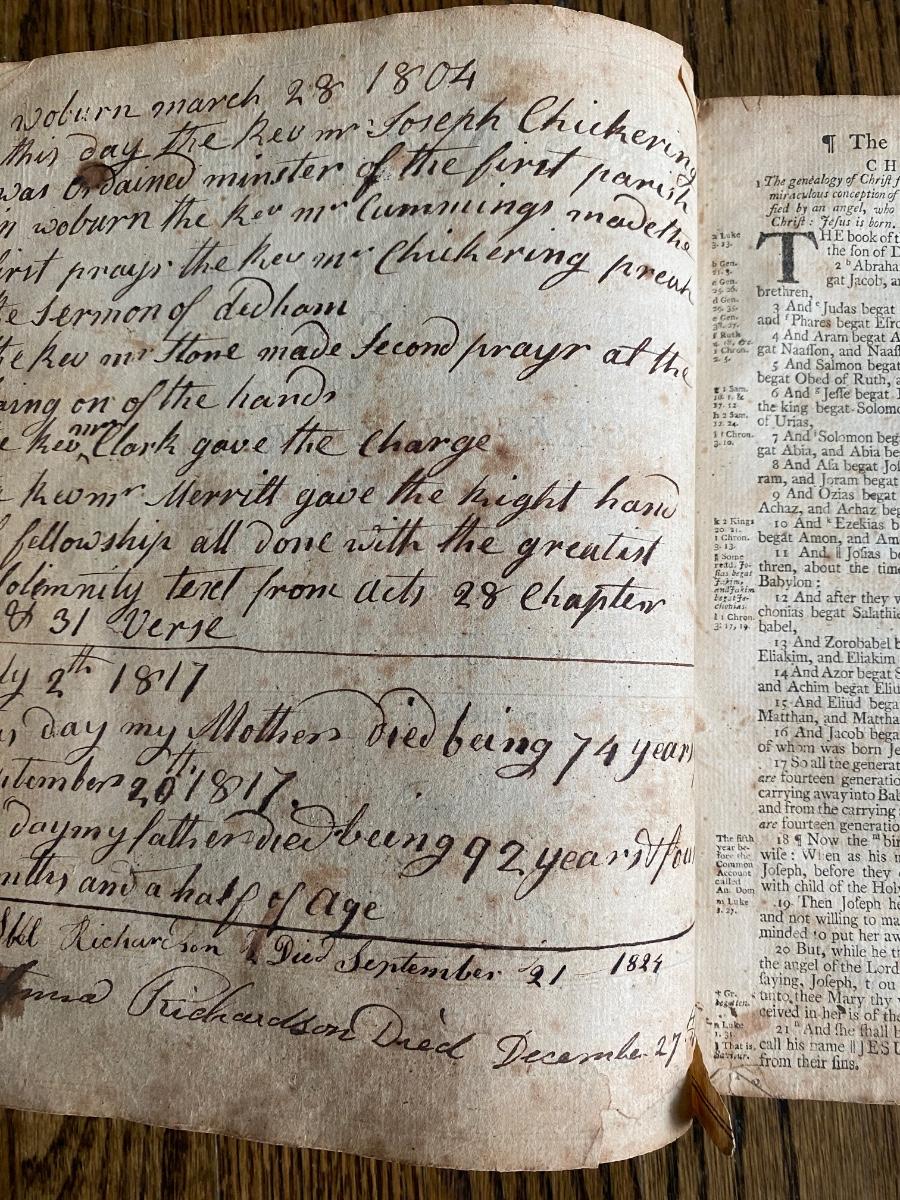 woburn march 28 1804
this day the Rev mr Joseph Chickering
was Ordained minster of the first parish
in woburn the Rev mr Cummings made the
first prayr the Rev mr Chickering preach
the Sermon of dedham
the Rev mr Stone made Second prayr at the
laing on of the hands
Rev mr Clark gave the Charge
Rev mr Merritt gave the Right hand
fellowship all done with the greatist
Solimnity text from Acts 28 Chapter
& 31 Verse
ly 2th 1817
day my Mother died being 74 years
tember 20th 1817
day my father died being 92 years & fou
nths and a half of Age
Abel Richardson Died September 21 1824
Richardson Died December 27
¶ The
CH
1 The genealogy of Chriſt f
miraculous conception of
fied by an angel, who
Chriſt: Jeſus is born.
THE book of t
the ſon of D
2 b Abraha
gat Jacob, an
brethren,
3 And c Judas begat
and f Phares begat Eſro
4 And Aram begat A
gat Naaſſon, and Naaſſ
5 And Salmon begat
begat Obed of Ruth, a
6 And g Jeſſe begat
the king begat Solomo
of Urias,
7 And i Solomon beg
gat Abia, and Abia be
8 And Aſa begat Joſ
ram, and Joram begat
9 And Ozias begat
Achaz, and Achaz beg
10 And k Ezekias b
begat Amon, and Am
11 And ‖ Joſias be
thren, about the time
Babylon:
12 And after they w
chonias begat Salathie
babel,
13 And Zorobabel b
Eliakim, and Eliakim
14 And Azor begat S
and Achim begat Eliu
15 And Eliud bega
Matthan, and Mattha
16 And Jacob bega
of whom was born Je
17 So all the generat
are fourteen generatio
carrying away into Bab
and from the carrying
are fourteen generatio
18 ¶ Now the m bir
wiſe: When as his m
Joſeph, before they c
with child of the Holy
19 Then Joſeph he
and not willing to ma
minded to put her aw
20 But, while he th
the angel of the Lord
ſaying, Joſeph, t ou
unto thee Mary thy w
ceived in her is of the
21 n And ſhe ſhall b
call his name ‖ JESU
from their ſins.
a Luke
3. 23.
b Gen.
21. 3.
c Gen.
25. 26.
d Gen.
29. 35.
e Gen.
38. 27.
f Ruth
1 Chron.
2. 5.
g 1 Sam.
17. 12.
h 2 Sam.
12. 24.
i 1 Chron.
3. 10.
k 2 Kings
20. 21.
1 Chron.
3. 13.
‖ Some
read, Jo-
ſias begat
Jakim,
and Jakim
begat Je-
chonias.
l 1 Chron.
3. 17, 19.
The fifth
year be-
fore the
Common
Account
called
An. Dom
m Luke
1. 27.
† Gr.
begotten.
n Luke
1. 31.
‖ That is,
Saviour.